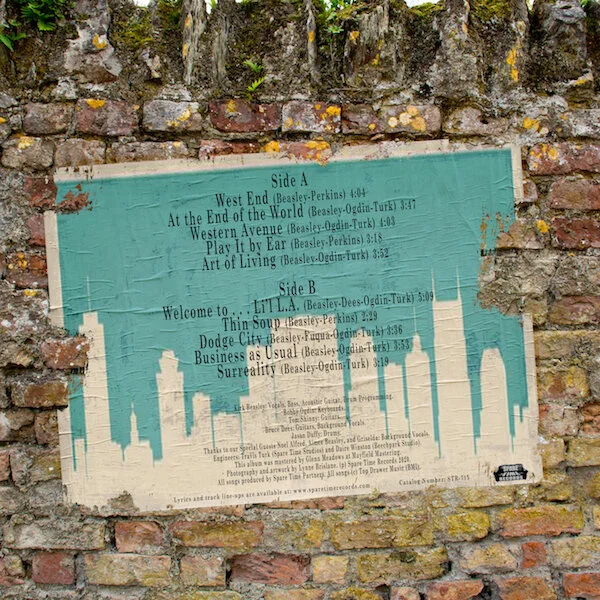 Side A
West End (Beasley-Perkins) 4:04
At the End of the World (Beasley-Ogdin-Turk) 3:47
Western Avenue (Beasley-Ogdin-Turk) 4:03
Play It by Ear (Beasley-Perkins) 3:18
Art of Living (Beasley-Ogdin-Turk) 3:52
Side B
Welcome to . . . Li'l L.A. (Beasley-Dees-Ogdin-Turk) 5:09
Thin Soup (Beasley-Perkins) 2:29
Dodge City (Beasley-Fuqua-Ogdin-Turk) 3:36
Business as Usual (Beasley-Ogdin-Turk) 3:53
Surreality (Beasley-Ogdin-Turk) 3:19
Kirk Beasley: Vocals, Bass, Acoustic Guitar, Drum Programming.
Bobby Ogdin: Keyboards.
Tom Shinny: Guitars.
Bruce Dees: Guitars, Background Vocals.
Jason Duffy: Drums.
Thanks to our Special Guests: Noel Alfred, Aimee Beasley, and Griselda: Background Vocals.
Engineers: Travis Turk (Spare Time Studios) and Daire Winston (Beechpark Studio).
This album was mastered by Glenn Meadows at Mayfield Mastering.
Photography and artwork by Lynne Brislane. (p) Spare Time Records 2020.
All songs produced by Spare Time Partners. All songs (c) Top Drawer Music (BMI).
Lyrics and track line-ups are available at: www.sparetimerecords.com
Catalog Number: STR-715
SPARE
TIME
RECORDS